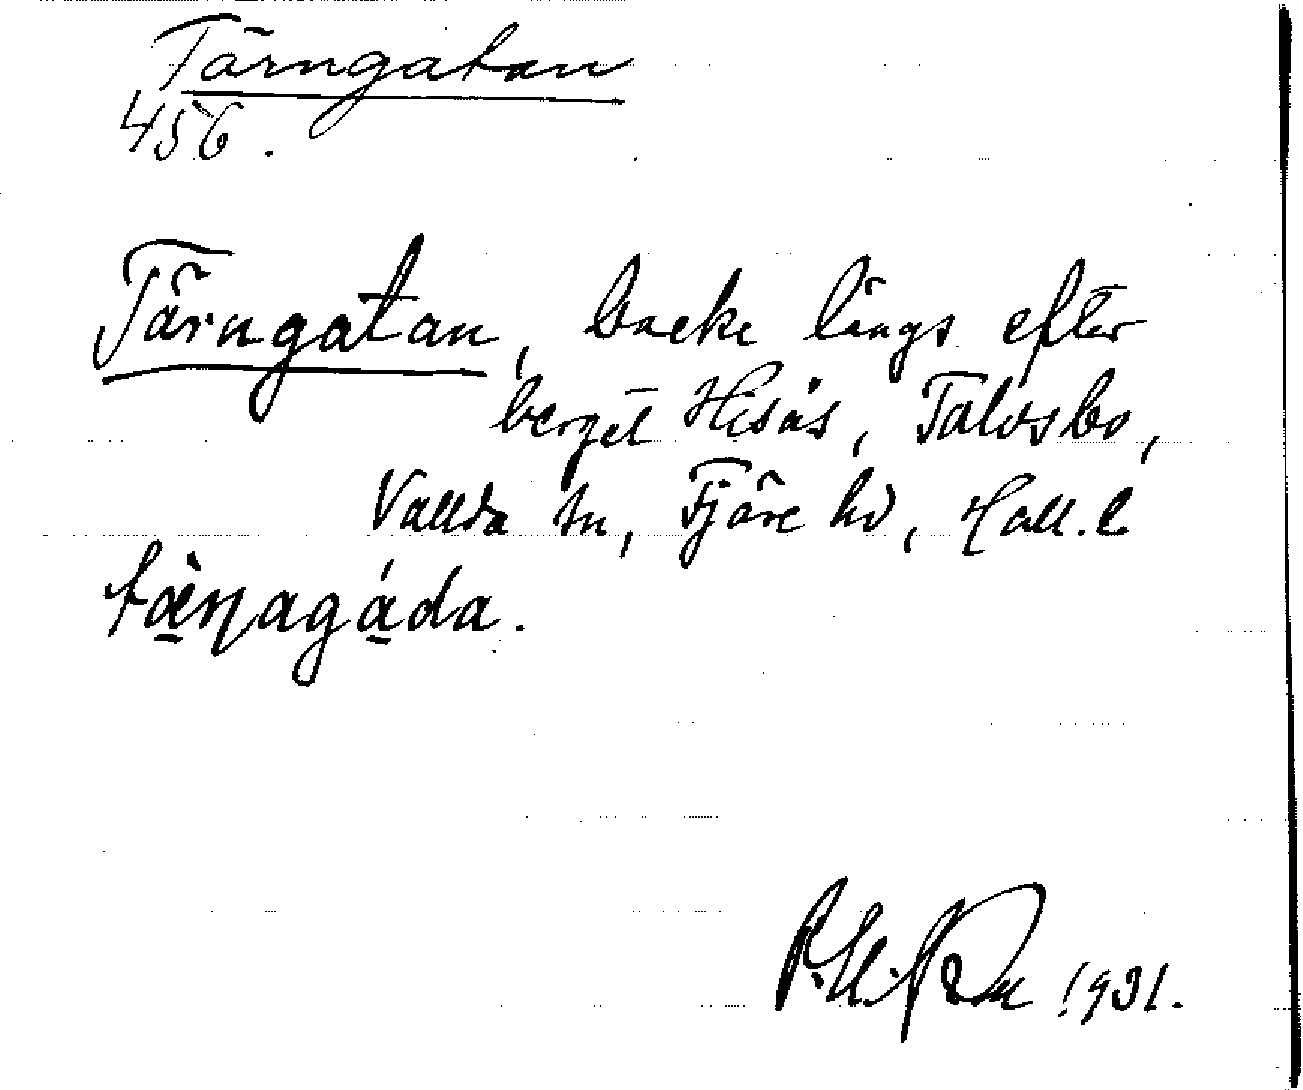 Tärngatan
456.
Tärngatan, backe längs efter
berget Hisås, Tolvsbo,
Vallda sn, Fjäre hd, Hall. l.
tæ̠̀ŋagá̠da.
1931.